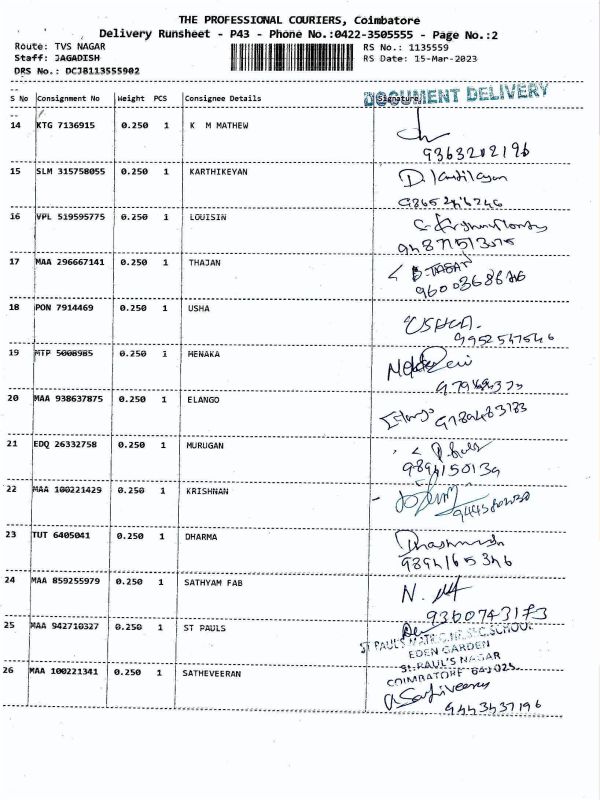 THE PROFESSIONAL COURIERS, Coimbatore
Delivery Runsheet - P43 - Phone No.:0422-3505555 - Page No.:2
Route: TVS NAGAR RS No.: 1135559
Staff: JAGADISH RS Date: 15-Mar-2023
DRS No.: DCJB113555902
DOCUMENT DELIVERY
S No Consignment No Weight PCS Consignee Details Signature
14 KTG 7136915 0.250 1 K M MATHEW
9363202196
15 SLM 315758055 0.250 1 KARTHIKEYAN
16 VPL 519595775 0.250 1 LOUISIN
17 MAA 296667141 0.250 1 THAJAN
18 PON 7914469 0.250 1 USHA
USHA.
9952547546
19 MTP 5008985 0.250 1 MENAKA
20 MAA 938637875 0.250 1 ELANGO
Elango
21 EDQ 26332758 0.250 1 MURUGAN
9894150139
22 MAA 100221429 0.250 1 KRISHNAN
23 TUT 6405041 0.250 1 DHARMA
9894165346
24 MAA 859255979 0.250 1 SATHYAM FAB
N.
9360743173
25 MAA 942710327 0.250 1 ST PAULS
ST PAUL'S MATRIC.HR.SEC.SCHOOL
EDEN GARDEN
ST.PAUL'S NAGAR
COIMBATORE 641025
26 MAA 100221341 0.250 1 SATHEVEERAN
9443437196